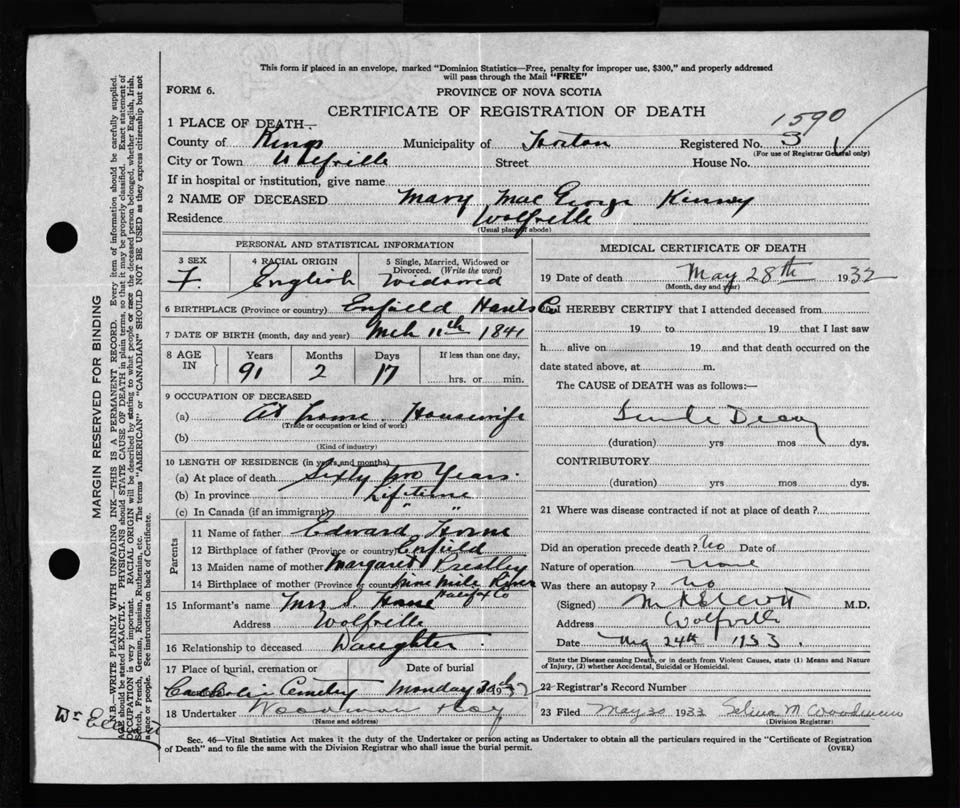 This form if placed in an envelope, marked "Dominion Statistics—Free, penalty for improper use, $300," and properly addressed
will pass through the Mail "FREE"
FORM 6.
PROVINCE OF NOVA SCOTIA
CERTIFICATE OF REGISTRATION OF DEATH
1590
1 PLACE OF DEATH—
County of Kings Municipality of Horton Registered No. 3
(For use of Registrar General only)
City or Town Wolfville Street House No.
If in hospital or institution, give name
2 NAME OF DECEASED Mary Mac George Kinney
Residence Wolfville
(Usual place of abode)
PERSONAL AND STATISTICAL INFORMATION
3 SEX F.
4 RACIAL ORIGIN English
5 Single, Married, Widowed or Divorced. (Write the word) Widowed
6 BIRTHPLACE (Province or country) Enfield Hants Co
7 DATE OF BIRTH (month, day and year) Mch 11th 1841
8 AGE IN Years Months Days If less than one day,
91 2 17 hrs. or min.
9 OCCUPATION OF DECEASED
(a) At home Housewife
(Trade or occupation or kind of work)
(b)
(Kind of industry)
10 LENGTH OF RESIDENCE (in years and months)
(a) At place of death Sixty two Years
(b) In province Lifetime
(c) In Canada (if an immigrant) " "
Parents
11 Name of father Edward Horne
12 Birthplace of father (Province or country) Enfield
13 Maiden name of mother Margaret
14 Birthplace of mother (Province or country) Nine Mile River
Halifax Co
15 Informant's name Mrs S.
Address Wolfville
16 Relationship to deceased Daughter
17 Place of burial, cremation or Date of burial
Catholic Cemetery Monday 30th 1932
18 Undertaker Woodman
(Name and address)
MEDICAL CERTIFICATE OF DEATH
19 Date of death May 28th 1932
(Month, day and year)
I HEREBY CERTIFY that I attended deceased from
19 to 19 that I last saw
h alive on 19 and that death occurred on the
date stated above, at m.
The CAUSE of DEATH was as follows:—
Senile Decay
(duration) yrs mos dys.
CONTRIBUTORY
(duration) yrs mos dys.
21 Where was disease contracted if not at place of death?
Did an operation precede death? No Date of
Nature of operation None
Was there an autopsy? No
(Signed) M.D.
Address Wolfville
Date 24th 1933.
State the Disease causing Death, or in death from Violent Causes, state (1) Means and Nature
of Injury, (2) whether Accidental, Suicidal or Homicidal.
22 Registrar's Record Number
23 Filed May 30 1933 Selina M. Woodman
(Division Registrar)
Sec. 46—Vital Statistics Act makes it the duty of the Undertaker or person acting as Undertaker to obtain all the particulars required in the "Certificate of Registration
of Death" and to file the same with the Division Registrar who shall issue the burial permit.
(OVER)
MARGIN RESERVED FOR BINDING
N.B.—WRITE PLAINLY WITH UNFADING INK—THIS IS A PERMANENT RECORD. Every item of information should be carefully supplied.
AGE should be stated EXACTLY. PHYSICIANS should STATE CAUSE OF DEATH in plain terms, so that it may be properly classified. Exact statement of
OCCUPATION is very important. RACIAL ORIGIN will be described by stating to what people or race the deceased person belonged, whether English, Irish,
Scotch, French, German, Russian, Ruthenian, etc. The terms "AMERICAN" or "CANADIAN" SHOULD NOT BE USED as they express citizenship but not
a race or people. See instructions on back of Certificate.